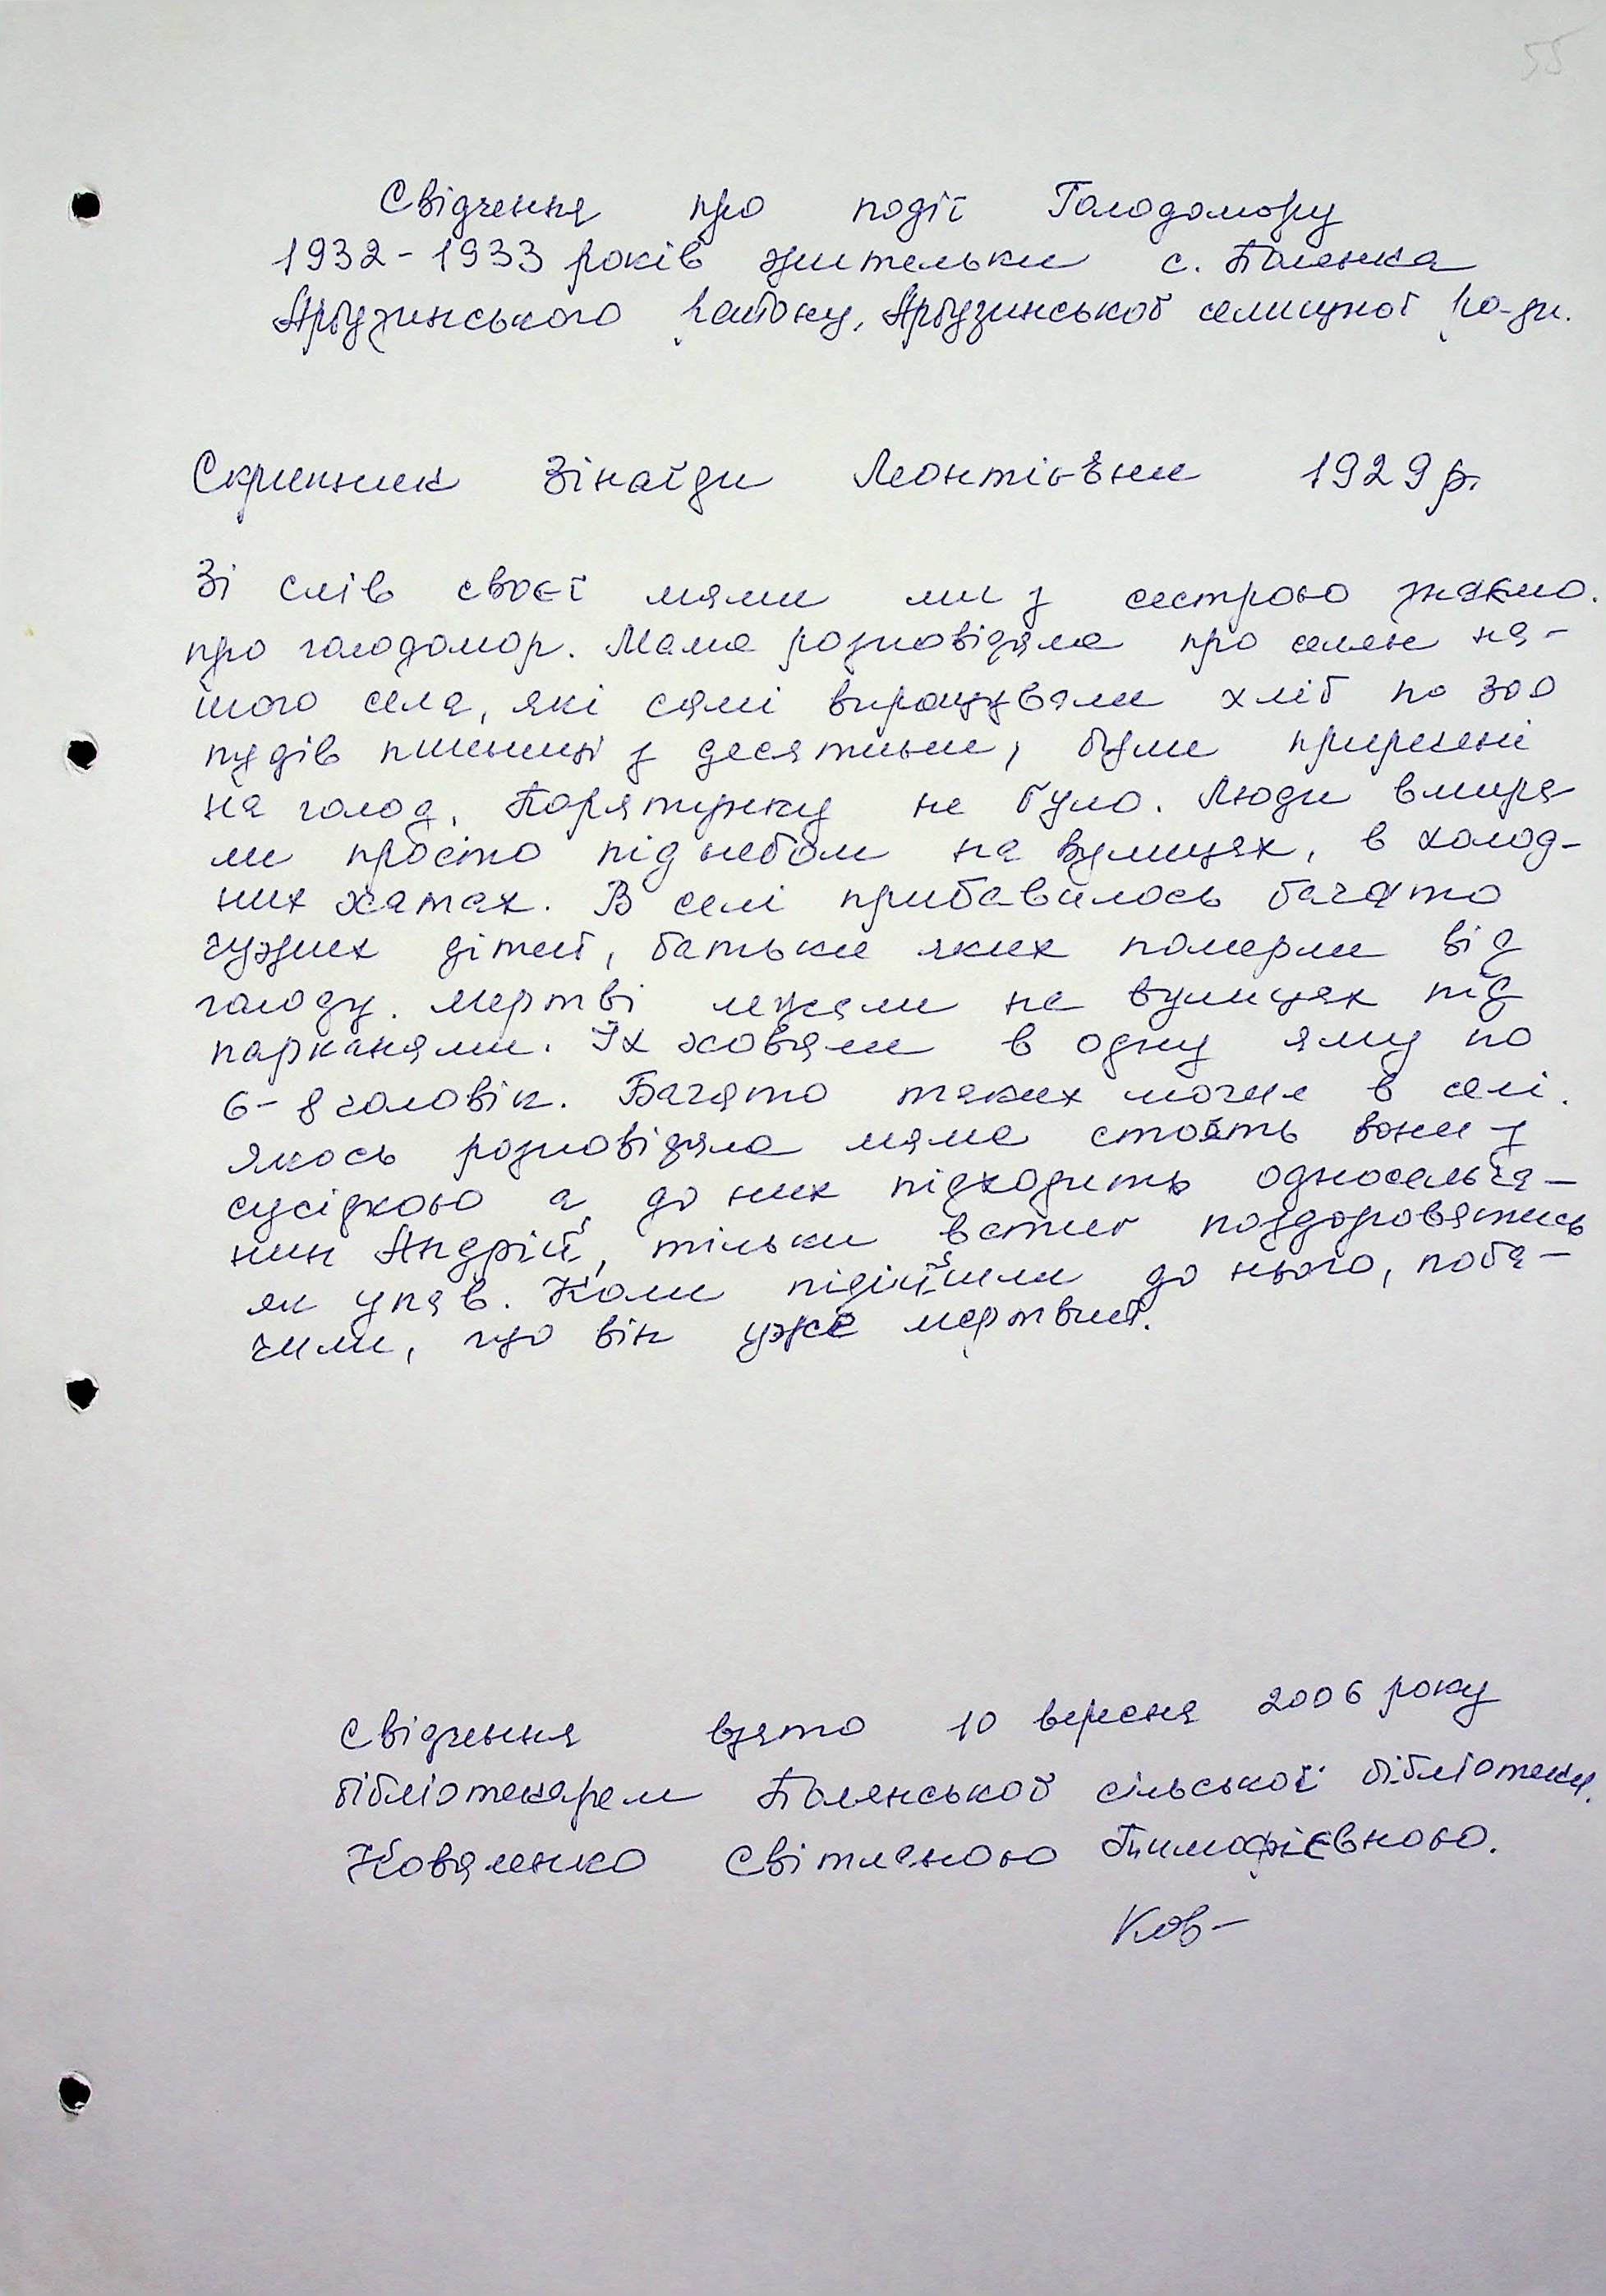 55
Свідчення про події Голодомору
1932-1933 років жительки с. Полянка
Арбузинського району, Арбузинської селищної ра-ди.
Скрипник Зінаїди Леонтіївни 1929р.
Зі слів своєї мами ми з сестрою знаємо.
про голодомор. Мама розповідала про селян на-
шого села, які самі вирощували хліб по 300
пудів пшениці з десятини, були приречені
на голод. Порятунку не було. Люди вмира-
ли просто під небом на вулицях, в холод-
них хатах. В селі прибавилось багато
чужих дітей, батьки яких померли від
голоду. Мертві лежали на вулицях під
парканами. Їх ховали в одну яму по
6-8 чоловік. Багато таких могил в селі.
Якось розповідала мама стоять вони з
сусідкою а до них підходить односельча-
нин Андрій, тільки встиг поздоровятись
як упав. Коли підійшли до нього, поба-
чили, що він уже мертвий.
Свідчення взято 10 вересня 2006 року
бібліотекарем Полянської сільської бібліотеки.
Коваленко Світланою Тимофієвною.
Ков-